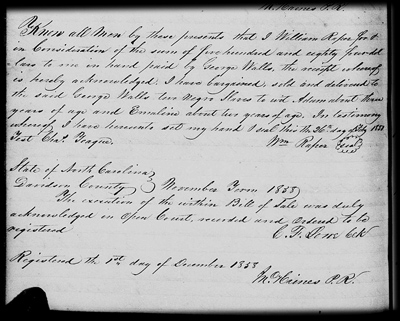 M. Haines P.R.
Know all Men by these presents that I William Raper for &
in Consideration of the sum of five hundred and eighty five dol
lars to me in hand paid by George Walls, the receipt whereof
is hereby acknowledged. I have bargained, sold and delivered to
the said George Walls two Negro Slaves to wit Adam about three
years of age and Emaline about ten years of age. In testimony
whereof I have hereunto set my hand & seal this the 26th day 1853
Test Chas. Teague. Wm Raper Seal
State of North Carolina
Davidson County November Term 1853
The execution of the within Bill of Sale was duly
acknowledged in Open Court, recorded and ordered to be
registered C. F. Lowe Clk
Registered the 1st day of December 1853
M. Haines P.R.